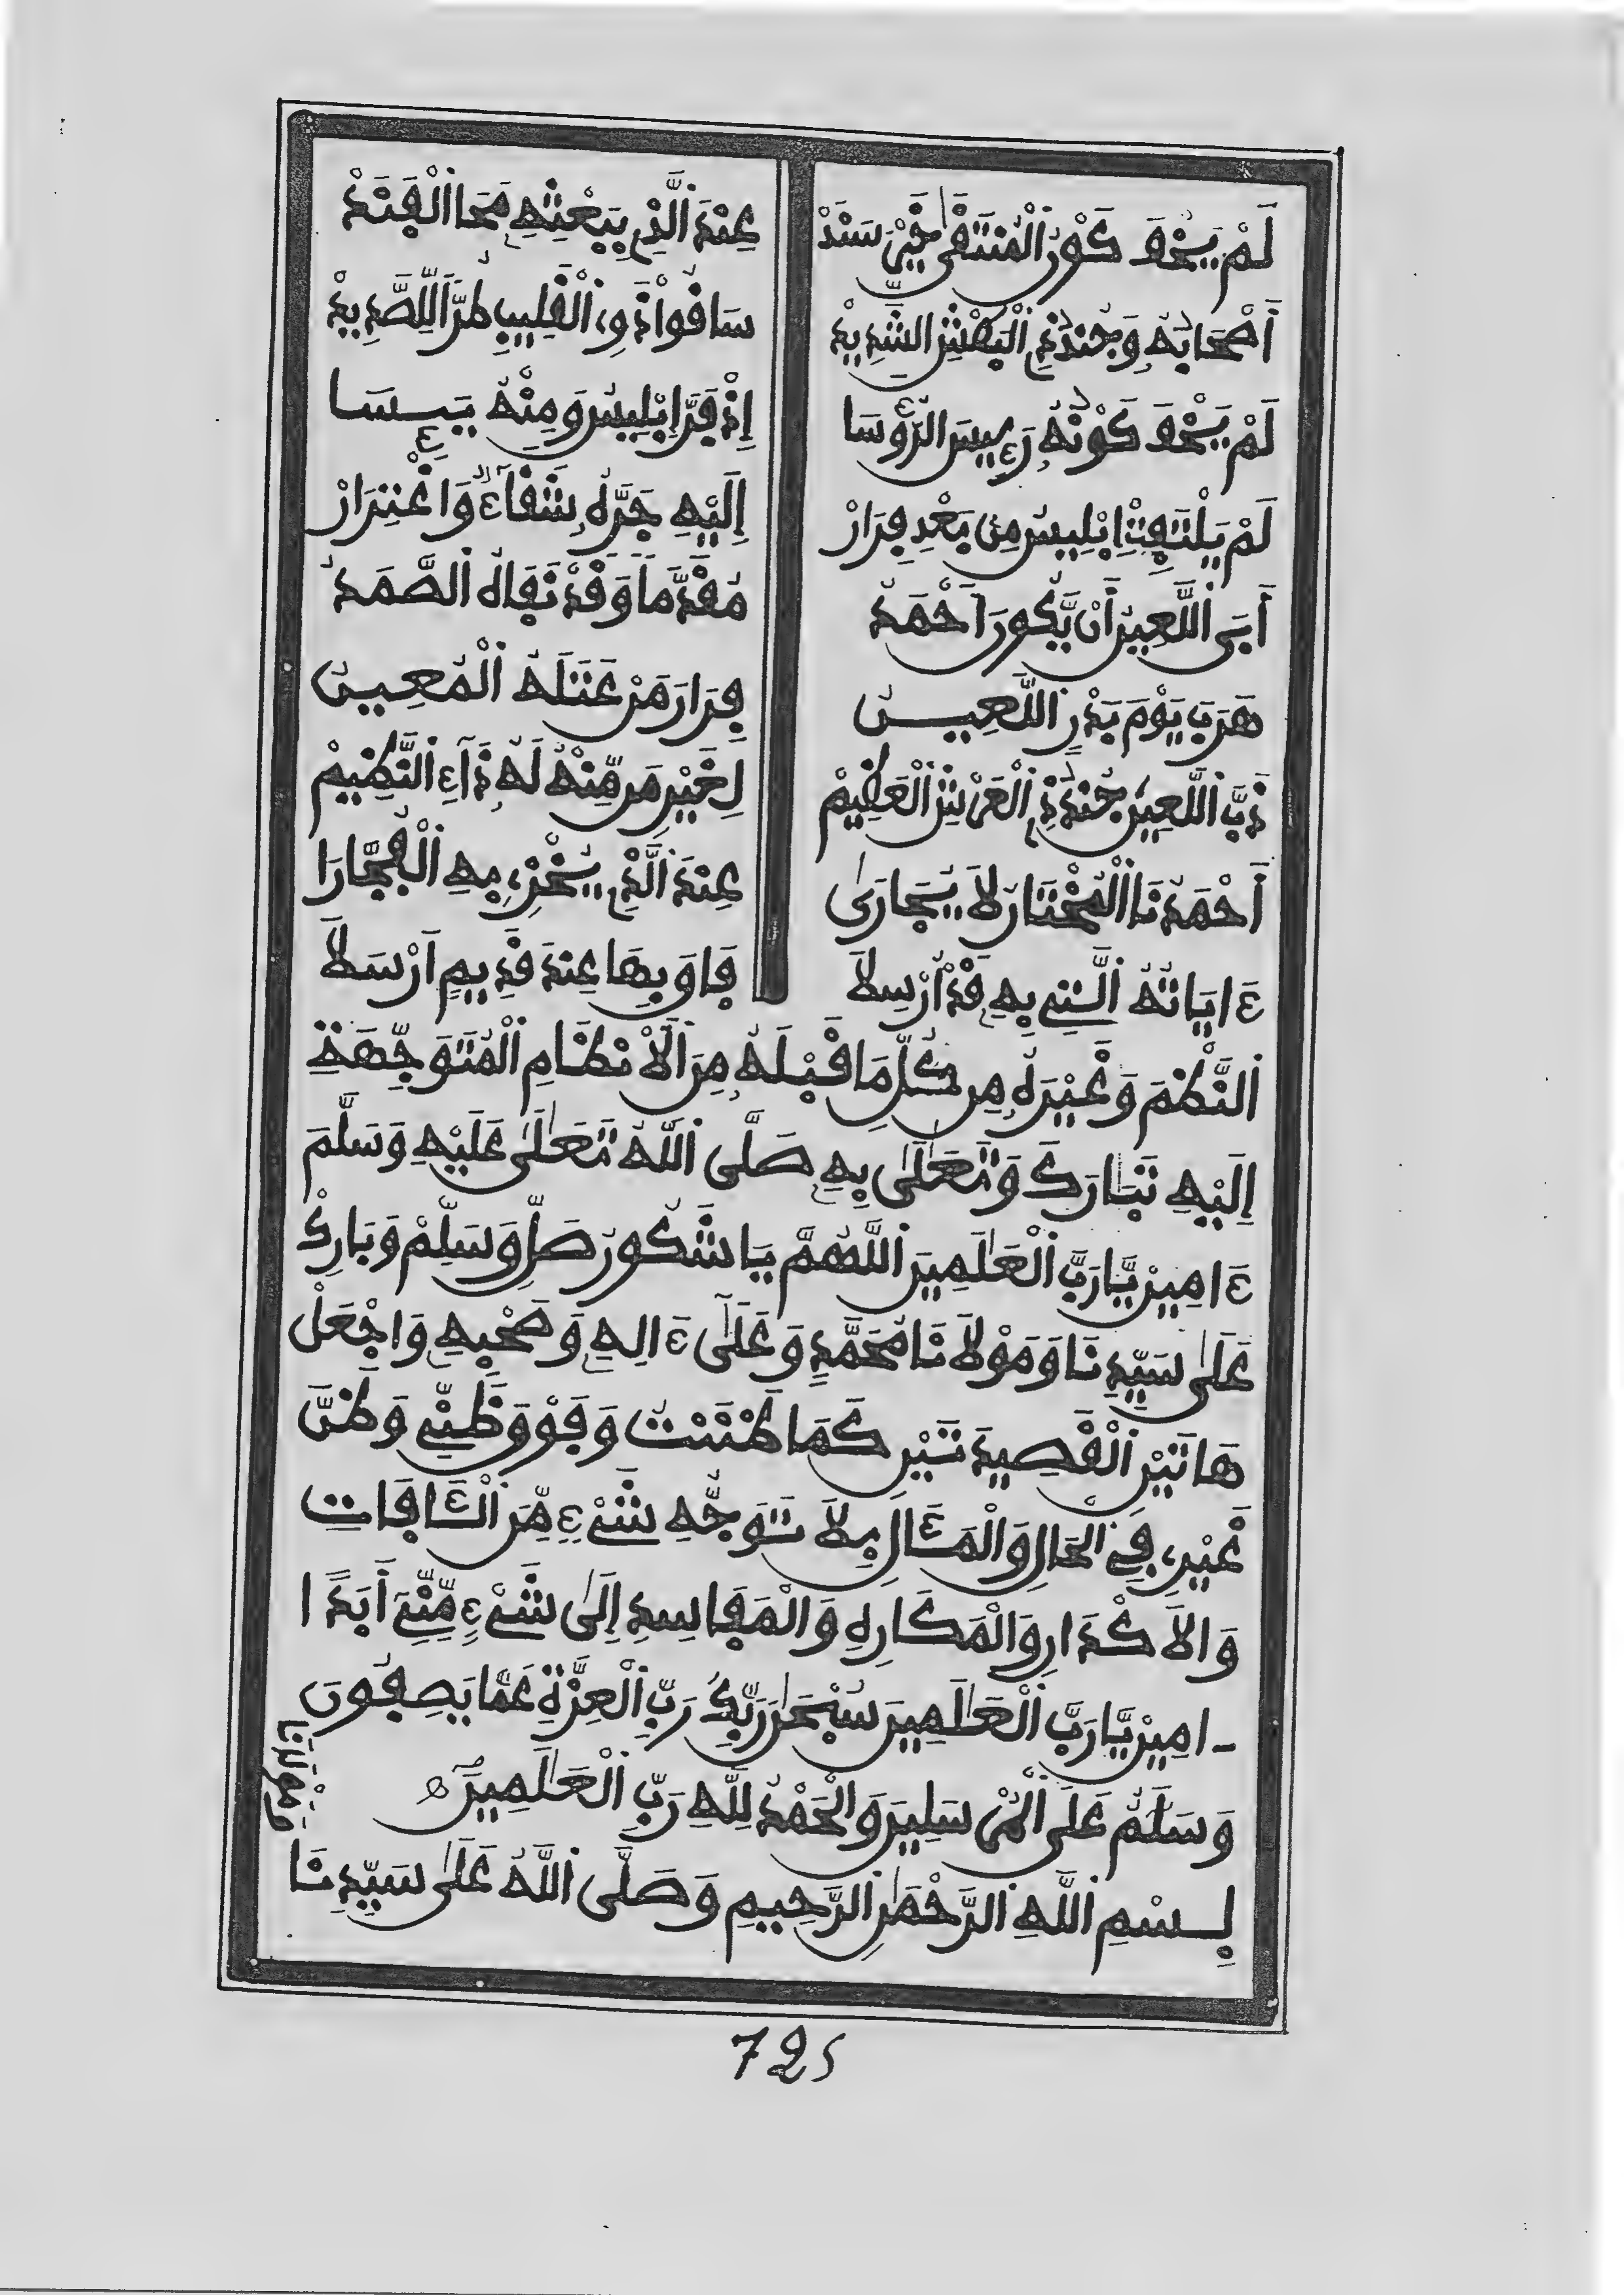 لَمْ يَخْفَ كَوْنُ الْمُنتَقَى خَيْرَ سَنَدْ عِندَ الَّذِي بِبَعْثِهِ مَحَا الْفَنَدْ
أَصْحَابُهُ وَجُندُ ذِي الْبَطْشِ الشَّدِيدْ سَاقُوا ذَوِي الْقَلِيبِ طُرًّا لِلصَّدِيدْ
لَمْ يَخْفَ كَوْنُهُ رَئِيسَ الرُّؤَسَا إِذْ فَرَّ إِبْلِيسُ وَمِنْهُ يَئِسَا
لَمْ يَلْتَفِتْ إِبْلِيسُ مِن بَعْدِ فِرَارْ إِلَيْهِ جَرَّهُ شَقَاءٌ وَاغْتِرَارْ
أَبَى اللَّعِينُ أَن يَّكُونَ أَحْمَدُ مُقَدَّمًا وَقَدْ نَفَاهُ الصَّمَدُ
هَرَبَ يَوْمَ بَدْرٍ اللَّعِينُ فِرَارَ مَنْ عَتَلَهُ الْمُعِينُ
ذَبَّ اللَّعِينَ جُندُ ذِي الْعَرْشِ الْعَظِيمْ لِغَيْرِ مَن مِّنْهُ لَهُ ذَاءِ النَّظِيمْ
أَحْمَدُنَا الْمُخْتَارُ لاَ يُجَارَى عِندَ الَّذِي يُخْزِي بِهِ الْفُجَّارَا
ءَايَاتُهُ الَّتِي بِهِ قَدْ أُرْسِلاَ فَاوَ بِهَا عِندَ قَدِيمٍ أَرْسَلاَ
النَّظْمَ وَغَيْرَهُ مِن كُلِّ مَا قَبْلَهُ مِنَ الأَنْظَامِ الْمُتَوَجِّهَةِ
إِلَيْهِ تَبَارَكَ وَتَعَلَى بِهِ صَلَّى اللَّهُ تَعَلَى عَلَيْهِ وَسَلَّمَ
ءَامِينْ يَّا رَبَّ الْعَلَمِينَ اللَّهُمَّ يَا شَكُورُ صَلِّ وَسَلِّمْ وَبَارِكْ
عَلَى سَيِّدِنَا وَمَوْلاَنَا مُحَمَّدٍ وَعَلَى ءَالِهِ وَصَحْبِهِ وَاجْعَلْ
هَاتَيْنِ الْقَصِيدَتَيْنِ كَمَا ظَنَنتُ وَفَوْقَ ظَنِّي وَظَنِّ
غَيْرِي فِي الْحَالِ وَالْمَئَالِ بِلاَ تَوَجُّهِ شَيْءٍ مِّنَ الْئَافَاتِ
وَالأَكْدَارِ وَالْمَكَارِهِ وَالْمَفَاسِدِ إِلَى شَيْءٍ مِّنِّي أَبَدًا
ءامِينْ يَّا رَبَّ الْعَلَمِينَ سُبْحَنَ رَبِّكَ رَبِّ الْعِزَّةِ عَمَّا يَصِفُونَ
وَسَلَمٌ عَلَى الْمُرْسَلِينَ وَالْحَمْدُ لِلَّهِ رَبِّ الْعَلَمِينَ
بِسْمِ اللَّهِ الرَّحْمَنِ الرَّحِيمِ وَصَلَّى اللَّهُ عَلَى سَيِّدِنَا
725